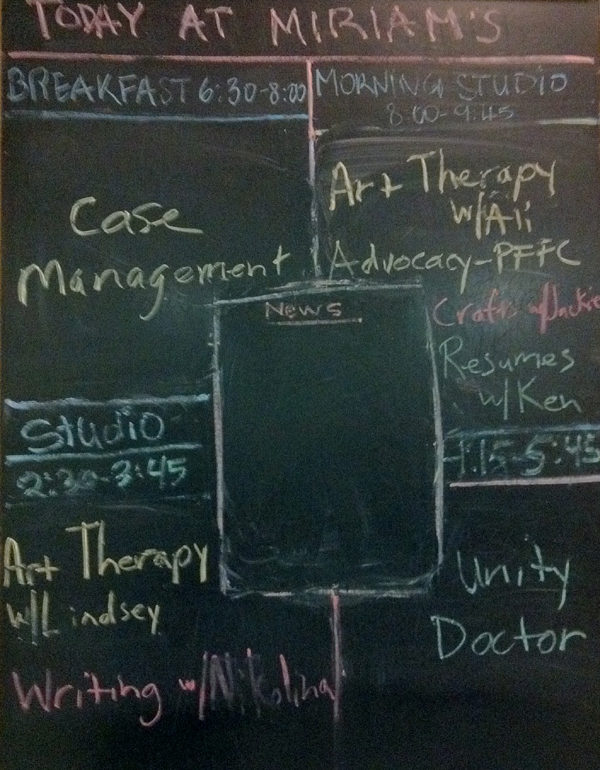 TODAY AT MIRIAM'S
BREAKFAST 6:30-8:00
Case
Management
MORNING STUDIO
8:00-9:45
Art Therapy
w/Ali
Advocacy-PFFC
Crafts w/Jackie
Resumes
w/Ken
News
Studio
2:30-3:45
Art Therapy
w/Lindsey
Writing w/Nikolina
4:15-5:45
Unity
Doctor